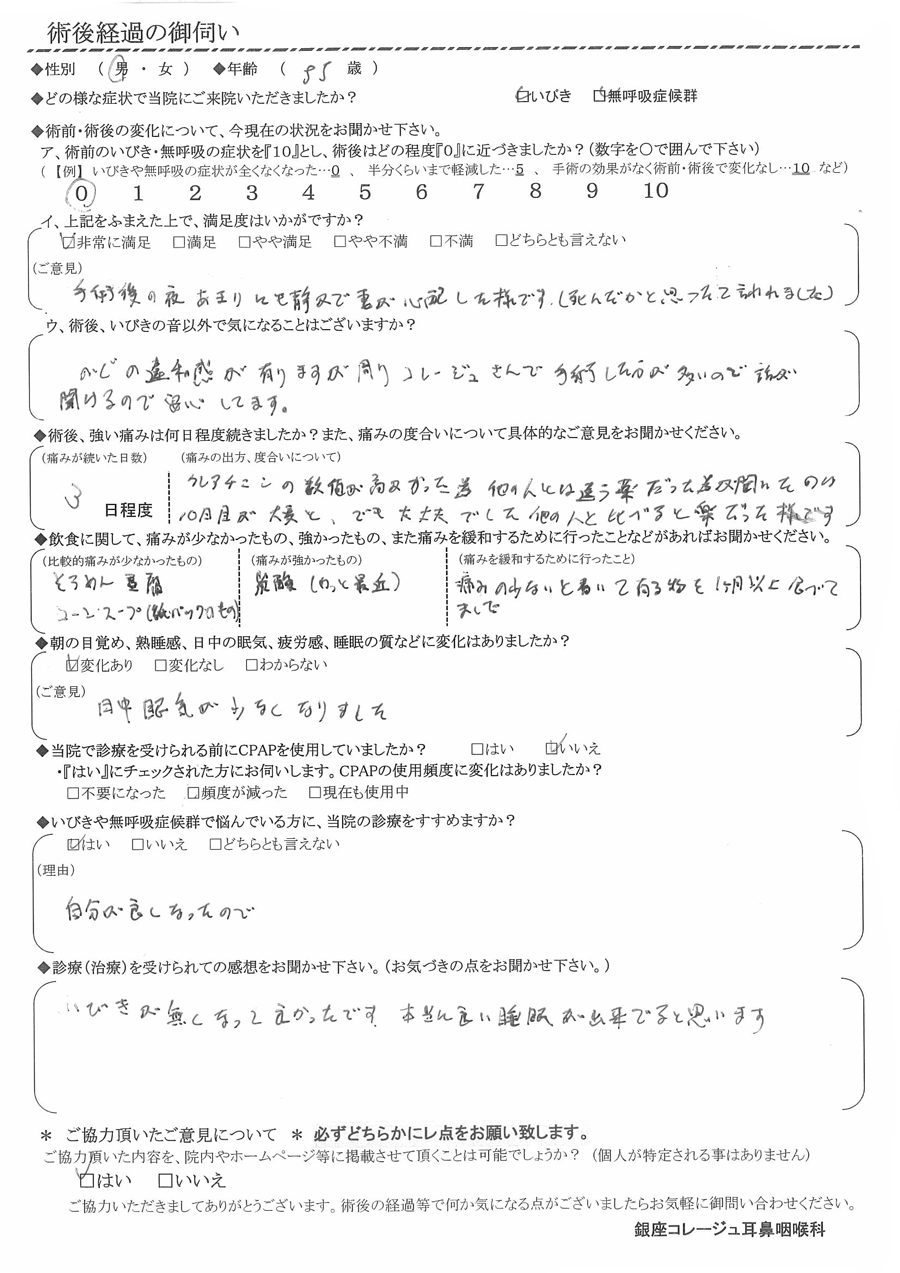 術後経過の御伺い
◆性別 （ 男 ・ 女 ） ◆年齢 （ 55 歳 ）
◆どの様な症状で当院にご来院いただきましたか？ ☑いびき ☑無呼吸症候群
◆術前・術後の変化について、今現在の状況をお聞かせ下さい。
ア、術前のいびき・無呼吸の症状を『10』とし、術後はどの程度『0』に近づきましたか？（数字を○で囲んで下さい）
（ 【例】 いびきや無呼吸の症状が全くなくなった…0 、 半分くらいまで軽減した…5 、 手術の効果がなく術前・術後で変化なし…10 など）
0 1 2 3 4 5 6 7 8 9 10
イ、上記をふまえた上で、満足度はいかがですか？
☑非常に満足 □満足 □やや満足 □やや不満 □不満 □どちらとも言えない
（ご意見）
手術後の夜 あまりにも静かで妻が心配した様です。（死んだかと思ったって言われました）
ウ、術後、いびきの音以外で気になることはございますか？
のどの違和感が有りますが周りコレージュさんで手術した方が多いので話が
聞けるので安心してます。
◆術後、強い痛みは何日程度続きましたか？また、痛みの度合いについて具体的なご意見をお聞かせください。
（痛みが続いた日数） （痛みの出方、度合いについて）
3 日程度
クレアチニンの数値が高かった為 他の人とは違う薬だった為聞いたのは
10日目が大変と、でも大丈夫でした 他の人と比べると楽だった様です
◆飲食に関して、痛みが少なかったもの、強かったもの、また痛みを緩和するために行ったことなどがあればお聞かせください。
（比較的痛みが少なかったもの） （痛みが強かったもの） （痛みを緩和するために行ったこと）
そうめん 豆腐 炭酸（やっと最近） 痛みの少ないと書いて有る物を1ヶ月以上食べて
コーンスープ（紙パックのもの） ました
◆朝の目覚め、熟睡感、日中の眠気、疲労感、睡眠の質などに変化はありましたか？
☑変化あり □変化なし □わからない
（ご意見）
日中眠気が少なくなりました
◆当院で診療を受けられる前にCPAPを使用していましたか？ □はい ☑いいえ
・『はい』にチェックされた方にお伺いします。CPAPの使用頻度に変化はありましたか？
□不要になった □頻度が減った □現在も使用中
◆いびきや無呼吸症候群で悩んでいる方に、当院の診療をすすめますか？
☑はい □いいえ □どちらとも言えない
（理由）
自分が良くなったので
◆診療（治療）を受けられての感想をお聞かせ下さい。（お気づきの点をお聞かせ下さい。）
いびきが無くなって良かったです 本当に良い睡眠が出来てると思います
＊ ご協力頂いたご意見について ＊ 必ずどちらかにレ点をお願い致します。
ご協力頂いた内容を、院内やホームページ等に掲載させて頂くことは可能でしょうか？ （個人が特定される事はありません）
☑はい □いいえ
ご協力いただきましてありがとうございます。術後の経過等で何か気になる点がございましたらお気軽に御問い合わせください。
銀座コレージュ耳鼻咽喉科